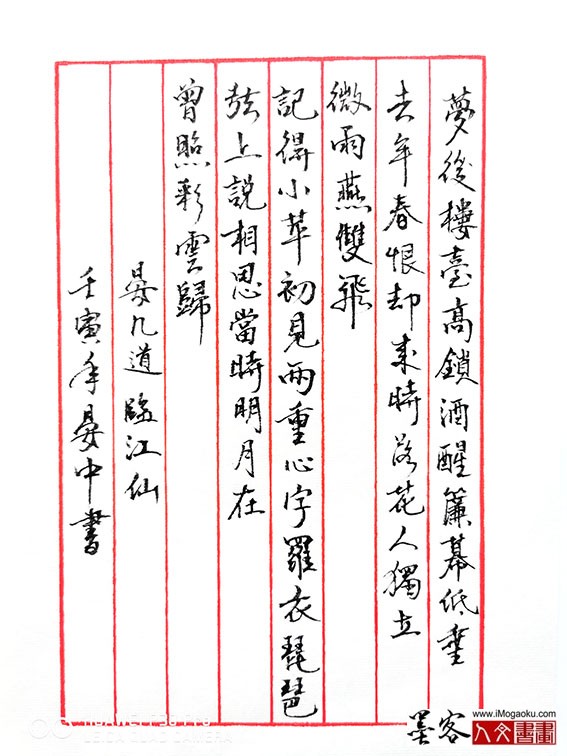 夢後樓臺高鎖酒醒簾幕低垂
去年春恨却来時落花人獨立
微雨燕雙飛
記得小苹初見兩重心字羅衣琵琶
弦上説相思當時明月在
曾照彩雲歸
晏几道臨江仙
壬寅年晏中書
www.iMogaoku.com
墨客
人文書畫